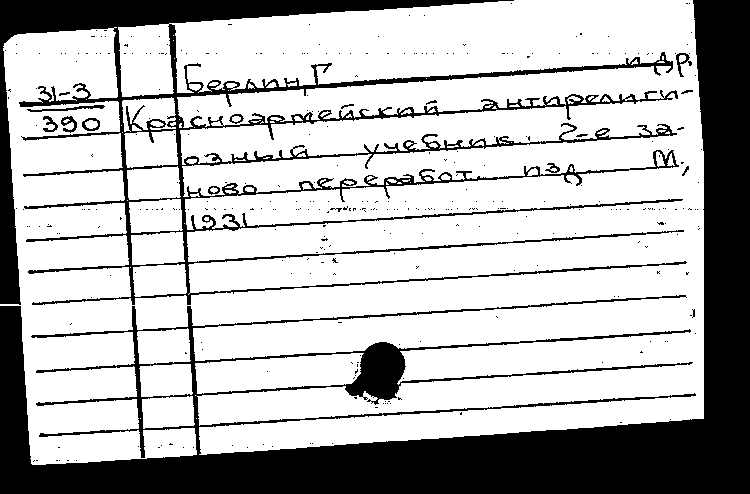 31-3 Берлин, Г. и др.
390 Красноармейский антирелиги-
озный учебник. 2-е за-
ново переработ. изд. М.,
1931